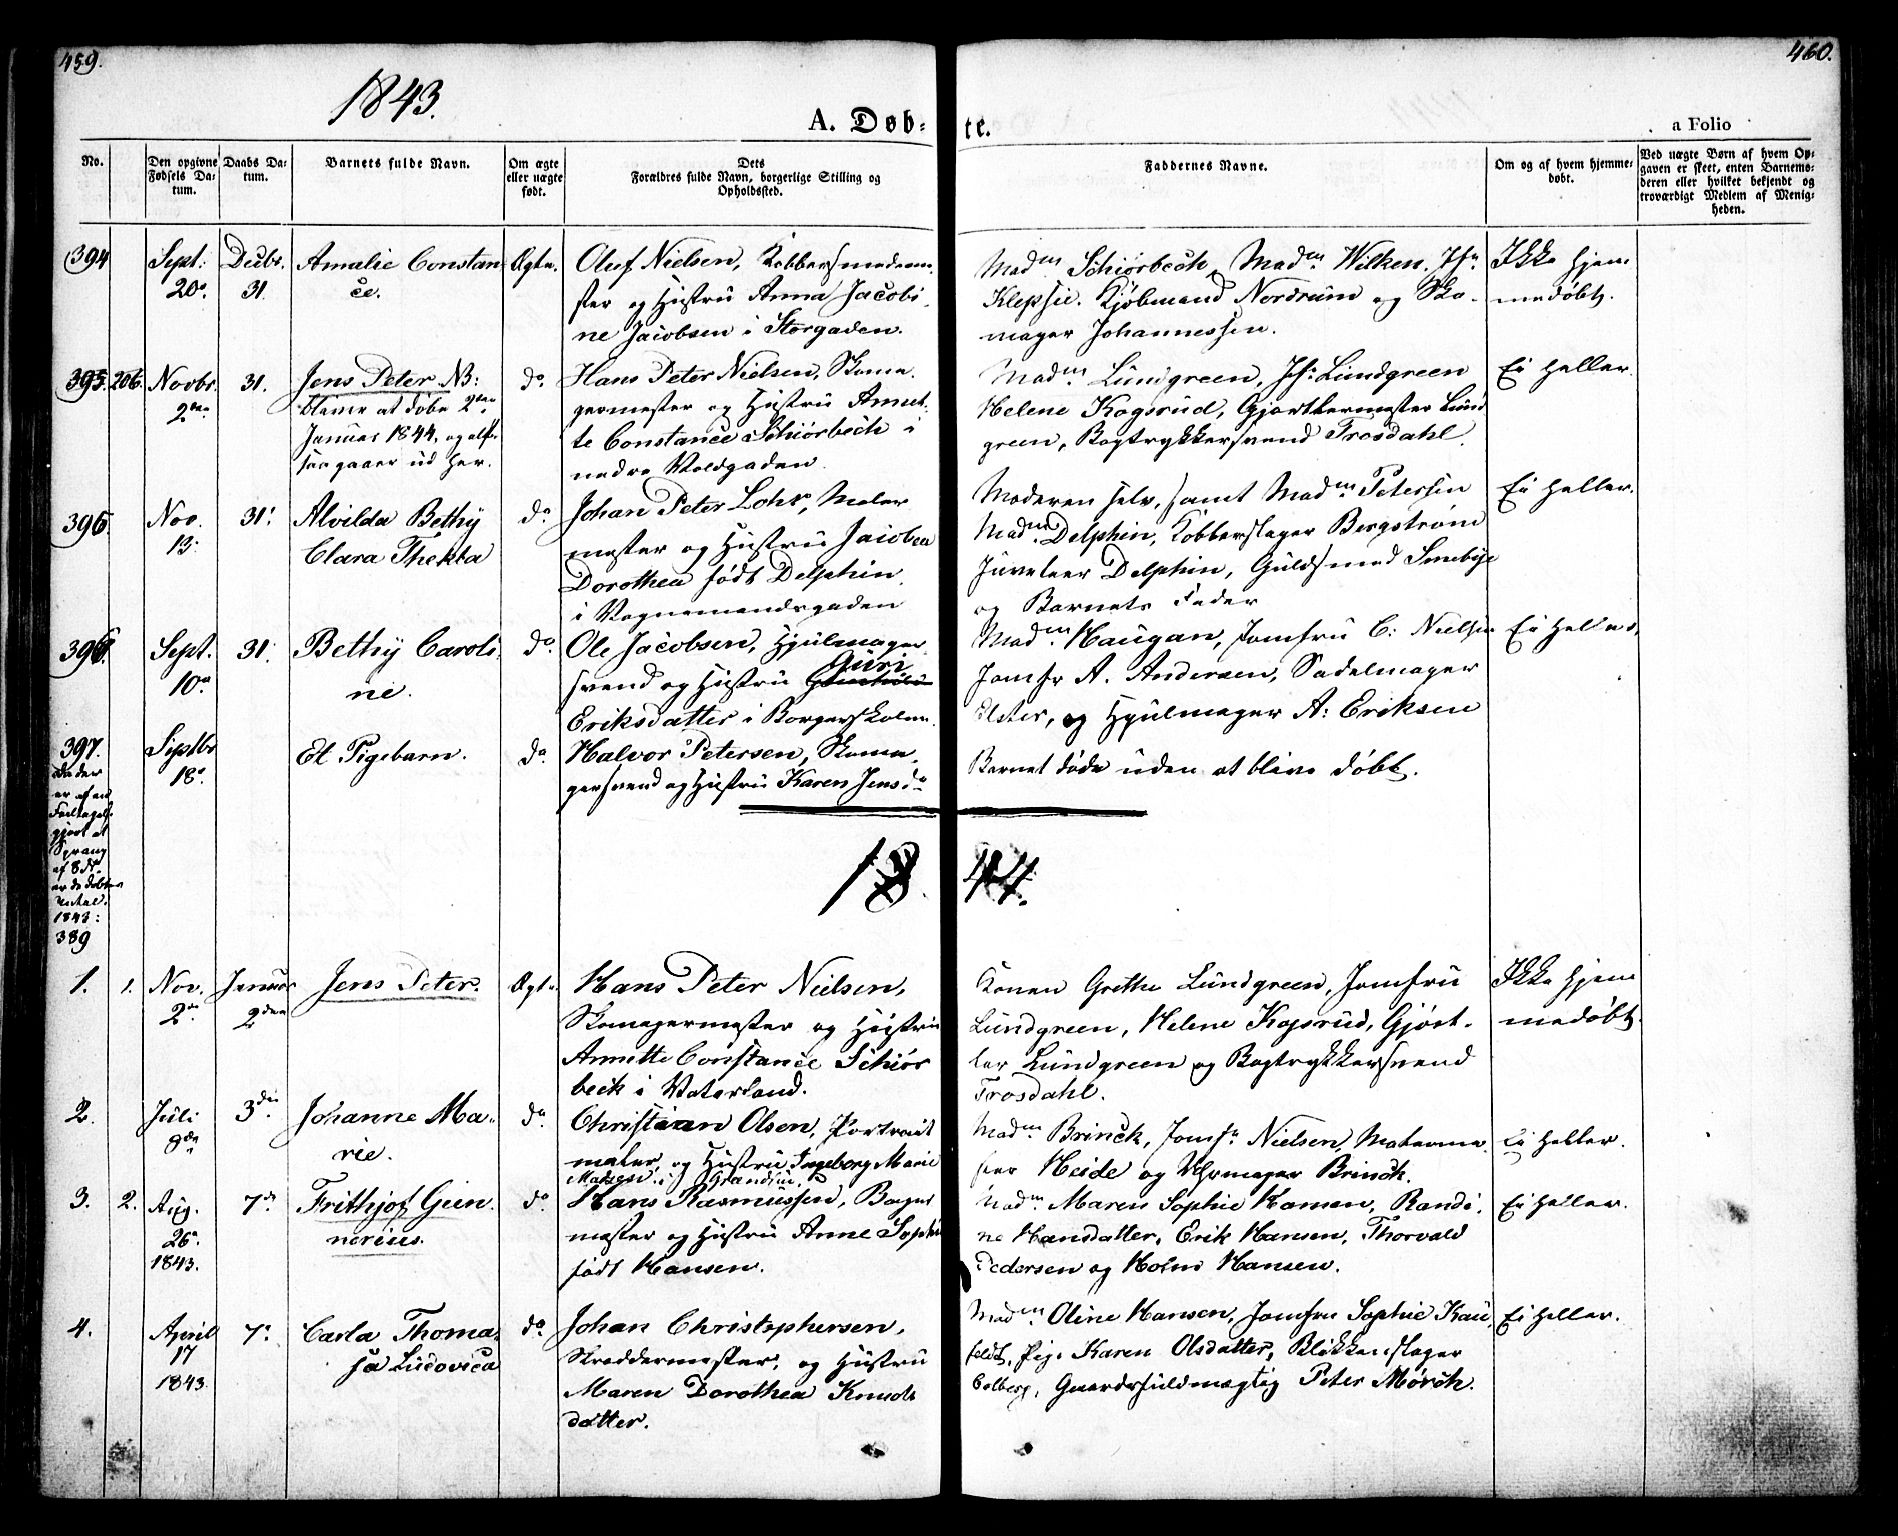 459.
460.
1843.
A. Døb-
te.
a Folio
No.
Den opgivne Fødsels Datum.
Daabs Datum.
Barnets fulde Navn.
Om ægte eller uægte født.
Dets Forældres fulde Navn, borgerlige Stilling og Opholdssted.
Faddernes Navne.
Om og af hvem hjemmedøbt.
Ved uægte Børn af hvem Opgaven er skeet, enten Barnemoderen eller hvilket bekjendt og troværdigt Medlem af Menigheden.
394
Sept: 20de
Decbr. 31.
Amalie Constan
ce.
Ægte.
Oluf Nielsen, Kobbersmedme
ster og Hustru Anna Jacobi
ne Jacobsen i Storgaden.
Madm Schiørbech, Madm. Wilken. Jfr
Klepsie. Kjøbmand Nordrum og Sko-
mager Johannessen.
Ikke hjem
medøbt.
395. 206.
Novbr. 2den
31.
Jens Peter NB:
bleve at døbe 2den
Januar 1844, og alt-
saa gaaer ud her.
do
Hans Peter Nielsen, Skoma
germester og Hustru Annet-
te Constance Schiørbech i
nedre Voldgaden.
Madm. Lundgreen, Jfr. Lundgreen
Helene Kogsrud, Gjørtlermester Lund
green, Bogtrykkersvend Trosdahl.
Ei heller.
396.
Nov. 13.
31.
Alvilda Bethy
Clara Thekla
do
Johan Peter Lohr, Maler
mester og Hustru Jacobea
Dorothea født Delphin,
i Vognmandsgaden
Moderen selv, samt Madm. Petersen
Madm. Delphin, Kobberslager Bergstrøm
Juveleer Delphin, Guldsmed Smebye
og Barnets Fader
Ei heller.
396.
Sept. 10de
31.
Bethy Caroli-
ne.
do
Ole Jacobsen, Hjulmager
Guri
svend og Hustru
Eriksdatter i Borgerskolen.
Madm. Haugan, Jomfru C: Nielsen
Jomfr A. Andersen, Sadelmager
Elster, og Hjulmager A: Eriksen
Ei heller.
397.
Septbr 18.
Et Pigebarn.
do
Halvor Petersen, Skoma
gersvend og Hustru Karen Jensdr
Barnet døde uden at blive døbt.
Da der
er af en
Feiltagelse
gjort et
Sprang
af 8 St.
er de døbtes
Antal
1843:
389
1844.
1. 1.
Nov. 2den
Januar 2den
Jens Peter.
Ægte.
Hans Peter Nielsen,
Skomagermester og Hustru
Annette Constance Schiør
beck i Vaterland.
Konen Grethe Lundgreen, Jomfru
Lundgreen, Helene Kogsrud, Gjørt-
ler Lundgreen og Bogtrykkersvend
Trosdahl.
Ikke hjem
medøbt.
2.
Juli 9de
3die
Johanne Ma-
rie.
do
Christian Olsen, Portrait
maler, og Hustru Ingeborg Marie
Mad. Brinck, Jomfr. Nielsen, Malerme
ster Heide og Uhrmager Brinck.
Ei heller.
3. 2.
Aug. 26de 1843.
7de
Frithjof Gun
nerius.
do
Hans Rasmussen, Bager
mester og Hustru Anne Sophie
født Hansen.
Madm Maren Sophie Hansen, Randi-
ne Hansdatter, Erik Hansen, Thorvald
Pedersen og Holm Hansen.
Ei heller.
4.
April 17 1843
7.
Carla Thoma-
sa Ludovica
do
Johan Christophersen,
Skreddermester, og Hustru
Maren Dorothea Knuds
datter.
Madm Oline Hansen, Jomfru Sophie Kau
feldt, Pige Karen Olsdatter, Blikkenslager
Colberg, Guardsfuldmægtig Peter Mørch.
Ei heller.